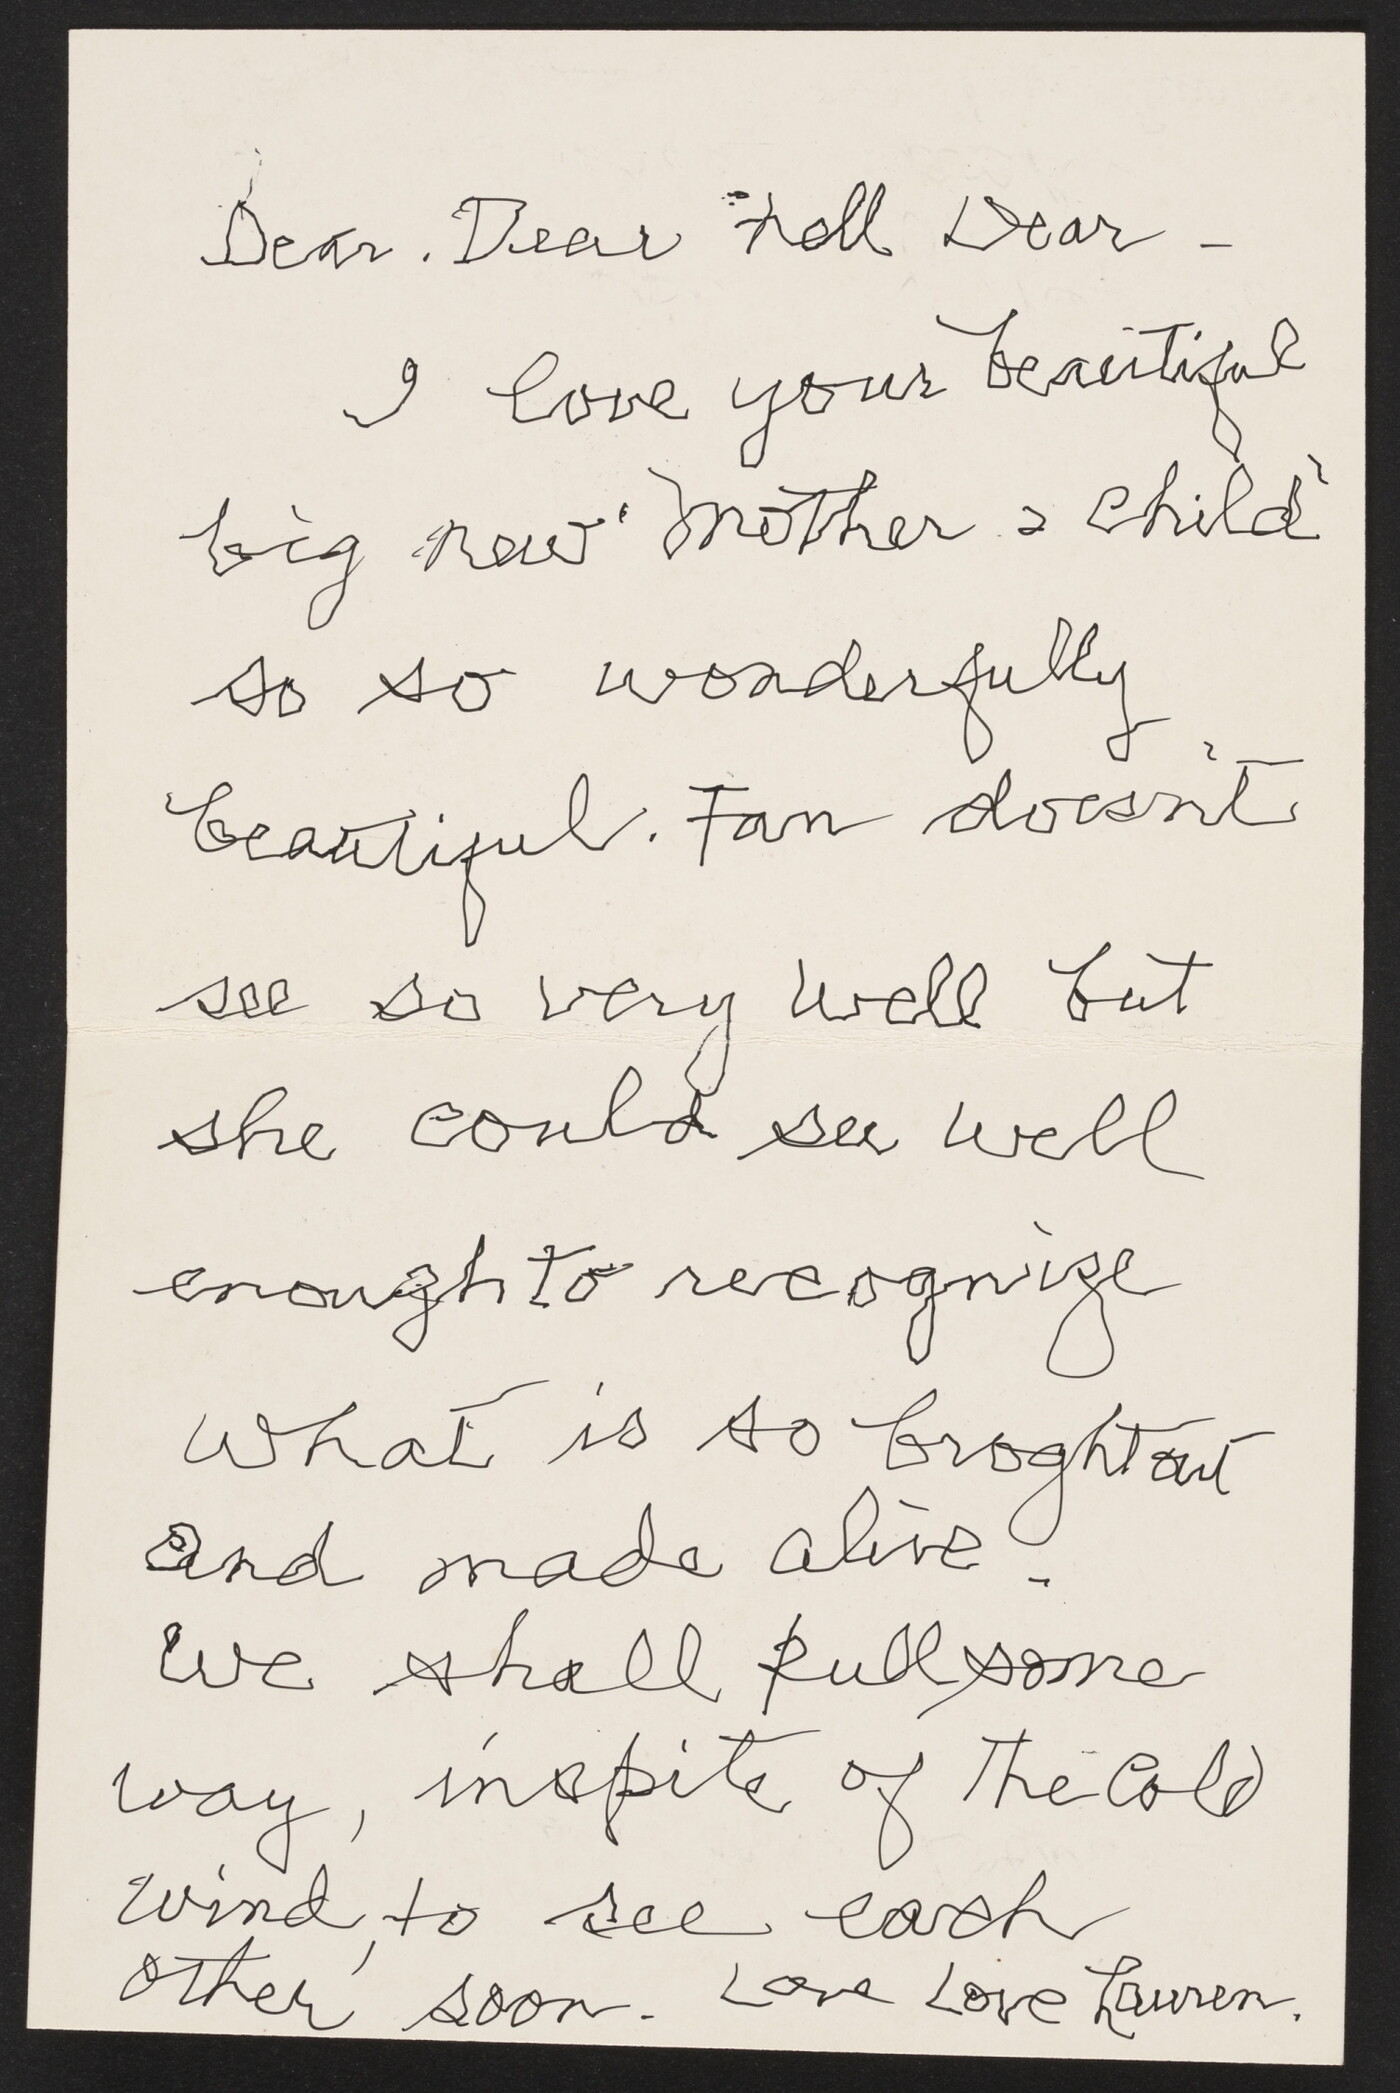 Dear. Dear Noll Dear -
I love your beautiful
big new "Mother & Child"
so so wonderfully
beautiful. Fan doesn't
see so very well but
she could see well
enough to recognize
what is so broght out
and made alive -
We shall pull some
way, inspite of the cold
wind, to see each
other soon. Love Love Lauren.